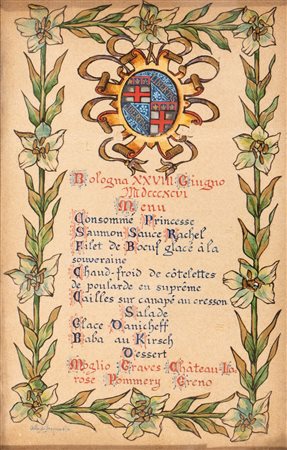 Bologna XXVIII Giugno
Mdcccxcvi
Menu
Consommé Princesse
Saumon Sauce Rachel
Filet de Boeuf glacé à la
souveraine
Chaud-froid de côtelettes
de poularde en suprême
Cailles sur canapé au cresson
Salade
Glace Danicheff
Baba au Kirsch
Dessert
Moglio Graves Château-La
rose Pommery Greno